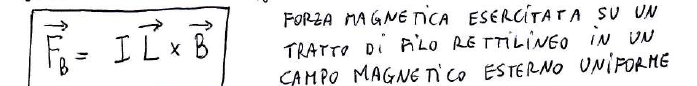 F⃗_B = I L⃗ × B⃗
FORZA MAGNETICA ESERCITATA SU UN
TRATTO DI FILO RETTILINEO IN UN
CAMPO MAGNETICO ESTERNO UNIFORME